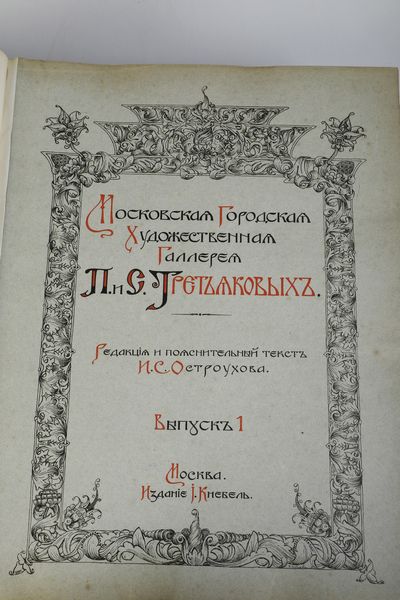 Московская Городская
Художественная
Галлерея
П. и С. Третьяковыхъ.
Редакція и пояснительный текстъ
И. С. Остроухова.
Выпускъ 1
Москва.
Изданіе І. Кнебель.